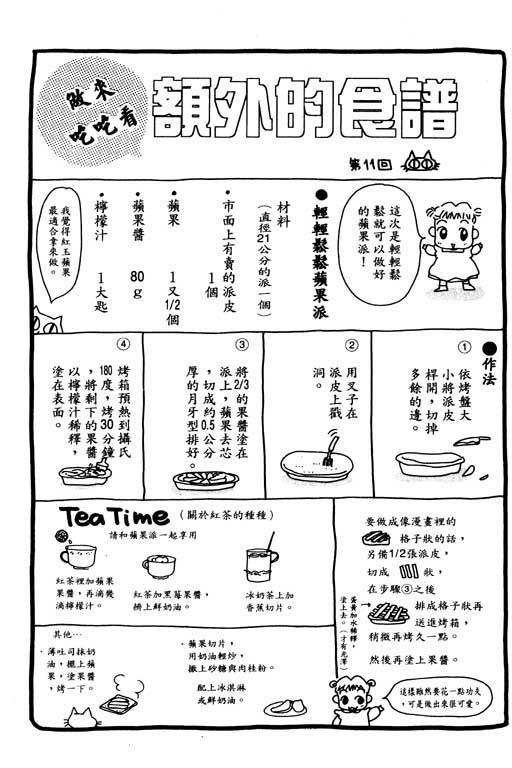 做來
吃吃看
額外的食譜
第11回
這次是輕輕鬆
鬆就可以做好
的蘋果派！
●輕輕鬆鬆蘋果派
材料
（直徑21公分的派一個）
・市面上有賣的派皮
1個
・蘋果 1又1/2個
・蘋果醬 80g
・檸檬汁 1大匙
我覺得紅玉蘋果
最適合拿來做。
●作法
①
依烤盤大
小將派皮
桿開，切掉
多餘的邊。
②
用叉子在
派皮上戳
洞。
③
將2/3的果醬塗在
派上，蘋果去芯
，切成約0.5公分
厚的月牙型排好。
④
烤箱預熱到攝氏
180度，烤30分鐘
，將剩下的果醬
以檸檬汁稀釋，
塗在表面。
Tea Time（關於紅茶的種種）
請和蘋果派一起享用
紅茶裡加蘋果
果醬，再滴幾
滴檸檬汁。
紅茶加黑莓果醬，
擠上鮮奶油。
冰奶茶上加
香蕉切片。
其他…
・薄吐司抹奶
油，擺上蘋
果，塗果醬
，烤一下。
・蘋果切片，
用奶油輕炒，
撒上砂糖與肉桂粉。
配上冰淇淋
或鮮奶油。
要做成像漫畫裡的
格子狀的話，
另備1/2張派皮，
切成 狀，
在步驟③之後
排成格子狀再
送進烤箱，
稍微再烤久一點。
然後再塗上果醬。
蛋黃加水稀釋，
塗上去。（才有光澤）
這樣雖然要花一點功夫
，可是做出來很可愛。